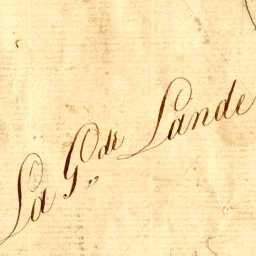 La G.de Lande